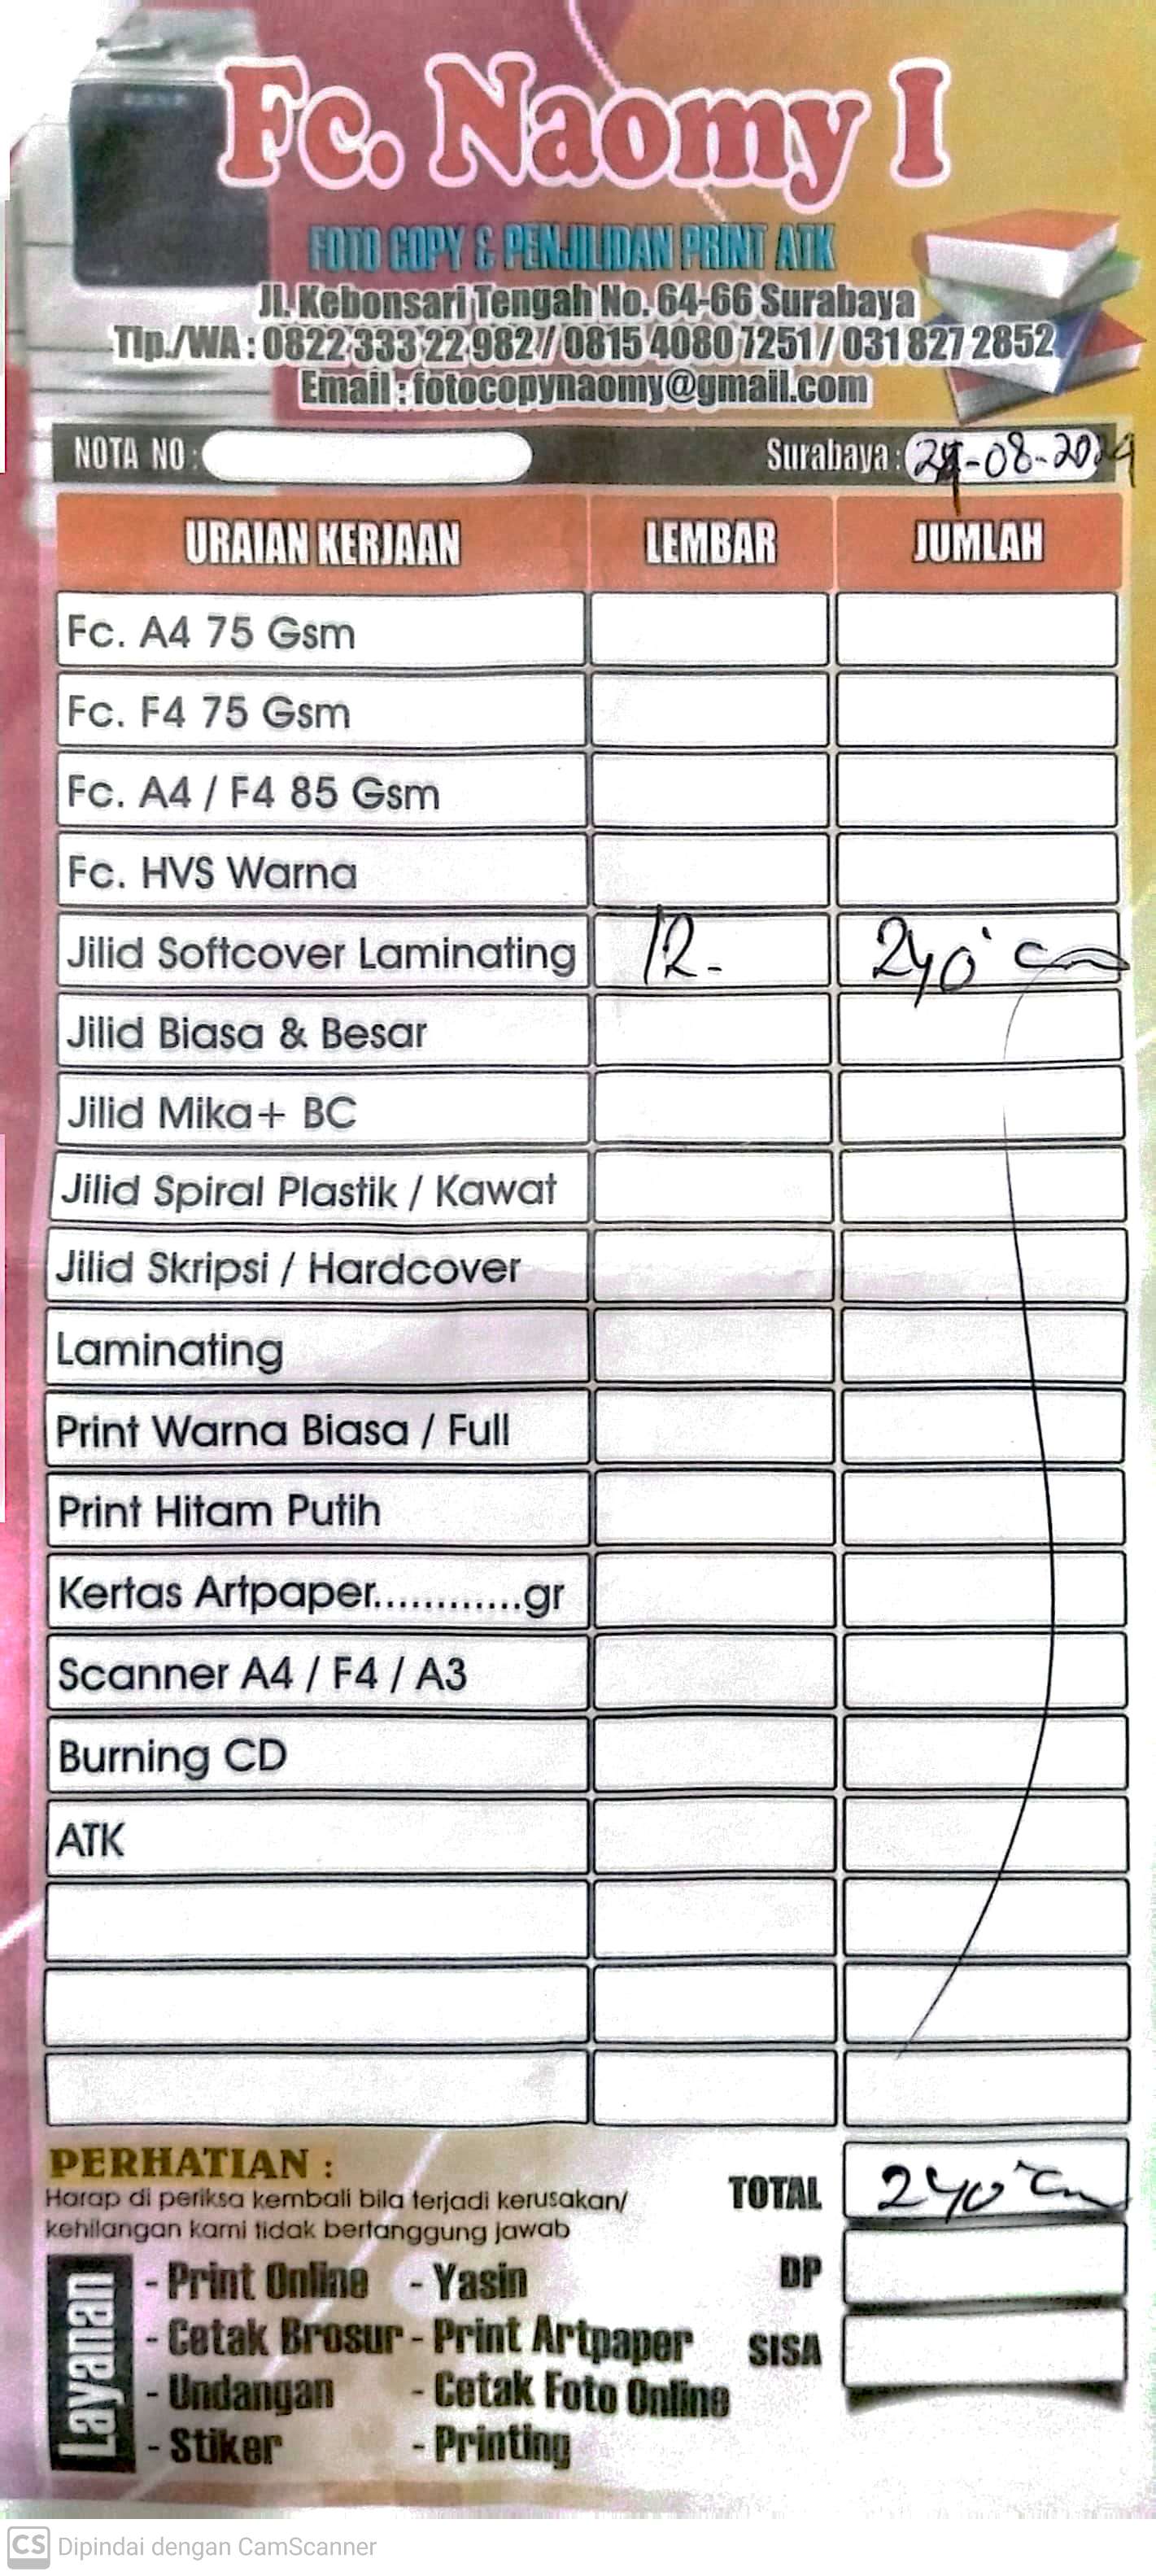 Fc. Naomy I
FOTO COPY & PENJILIDAN PRINT ATK
Jl. Kebonsari Tengah No. 64-66 Surabaya
Tlp./WA : 0822 333 22 982 / 0815 4080 7251 / 031 827 2852
Email : fotocopynaomy@gmail.com
NOTA NO : Surabaya : -08-2024
URAIAN KERJAAN LEMBAR JUMLAH
Fc. A4 75 Gsm
Fc. F4 75 Gsm
Fc. A4 / F4 85 Gsm
Fc. HVS Warna
Jilid Softcover Laminating 12.- 240
Jilid Biasa & Besar
Jilid Mika+ BC
Jilid Spiral Plastik / Kawat
Jilid Skripsi / Hardcover
Laminating
Print Warna Biasa / Full
Print Hitam Putih
Kertas Artpaper............gr
Scanner A4 / F4 / A3
Burning CD
ATK
PERHATIAN :
Harap di periksa kembali bila terjadi kerusakan/
kehilangan kami tidak bertanggung jawab
TOTAL 240
DP
SISA
Layanan
- Print Online - Yasin
- Cetak Brosur - Print Artpaper
- Undangan - Cetak Foto Online
- Stiker - Printing
CS Dipindai dengan CamScanner